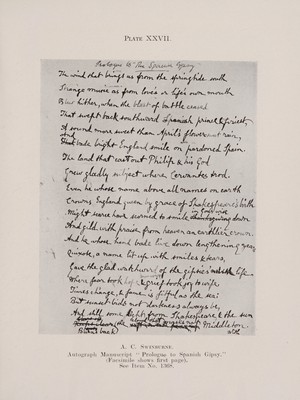 PLATE XXVII.
Prologue to The Spanish Gipsy
The wind that brings us from the springtide south
Strange music as from love's or life's own mouth
Blew hither, when the blast of battle ceased
That swept back southward Spanish prince & priest,
A sound more sweet than April's flower-sweet rain,
And bade bright England smile on pardoned Spain.
The land that cast out Philip & his God
Grew gladly subject where Cervantes trod.
Even he whose name above all names on earth
Crowns England queen by grace of Shakespeare's birth
Might scarce have scorned to smile in God's wise down
And gild with praise from heaven an earthlier crown.
And he whose hand bade live down lengthening years
Quixote, a name lit up with smiles & tears,
Gave the glad watchword of the gipsies' life,
Where fear took hope & grief took joy to wife.
Times change, & fame is fitful as the sea:
But sunset bids not darkness always be,
And still some light from Shakespeare & the sun
Burns back Middleton.
A. C. SWINBURNE.
Autograph Manuscript "Prologue to Spanish Gipsy."
(Facsimile shows first page).
See Item No. 1369.